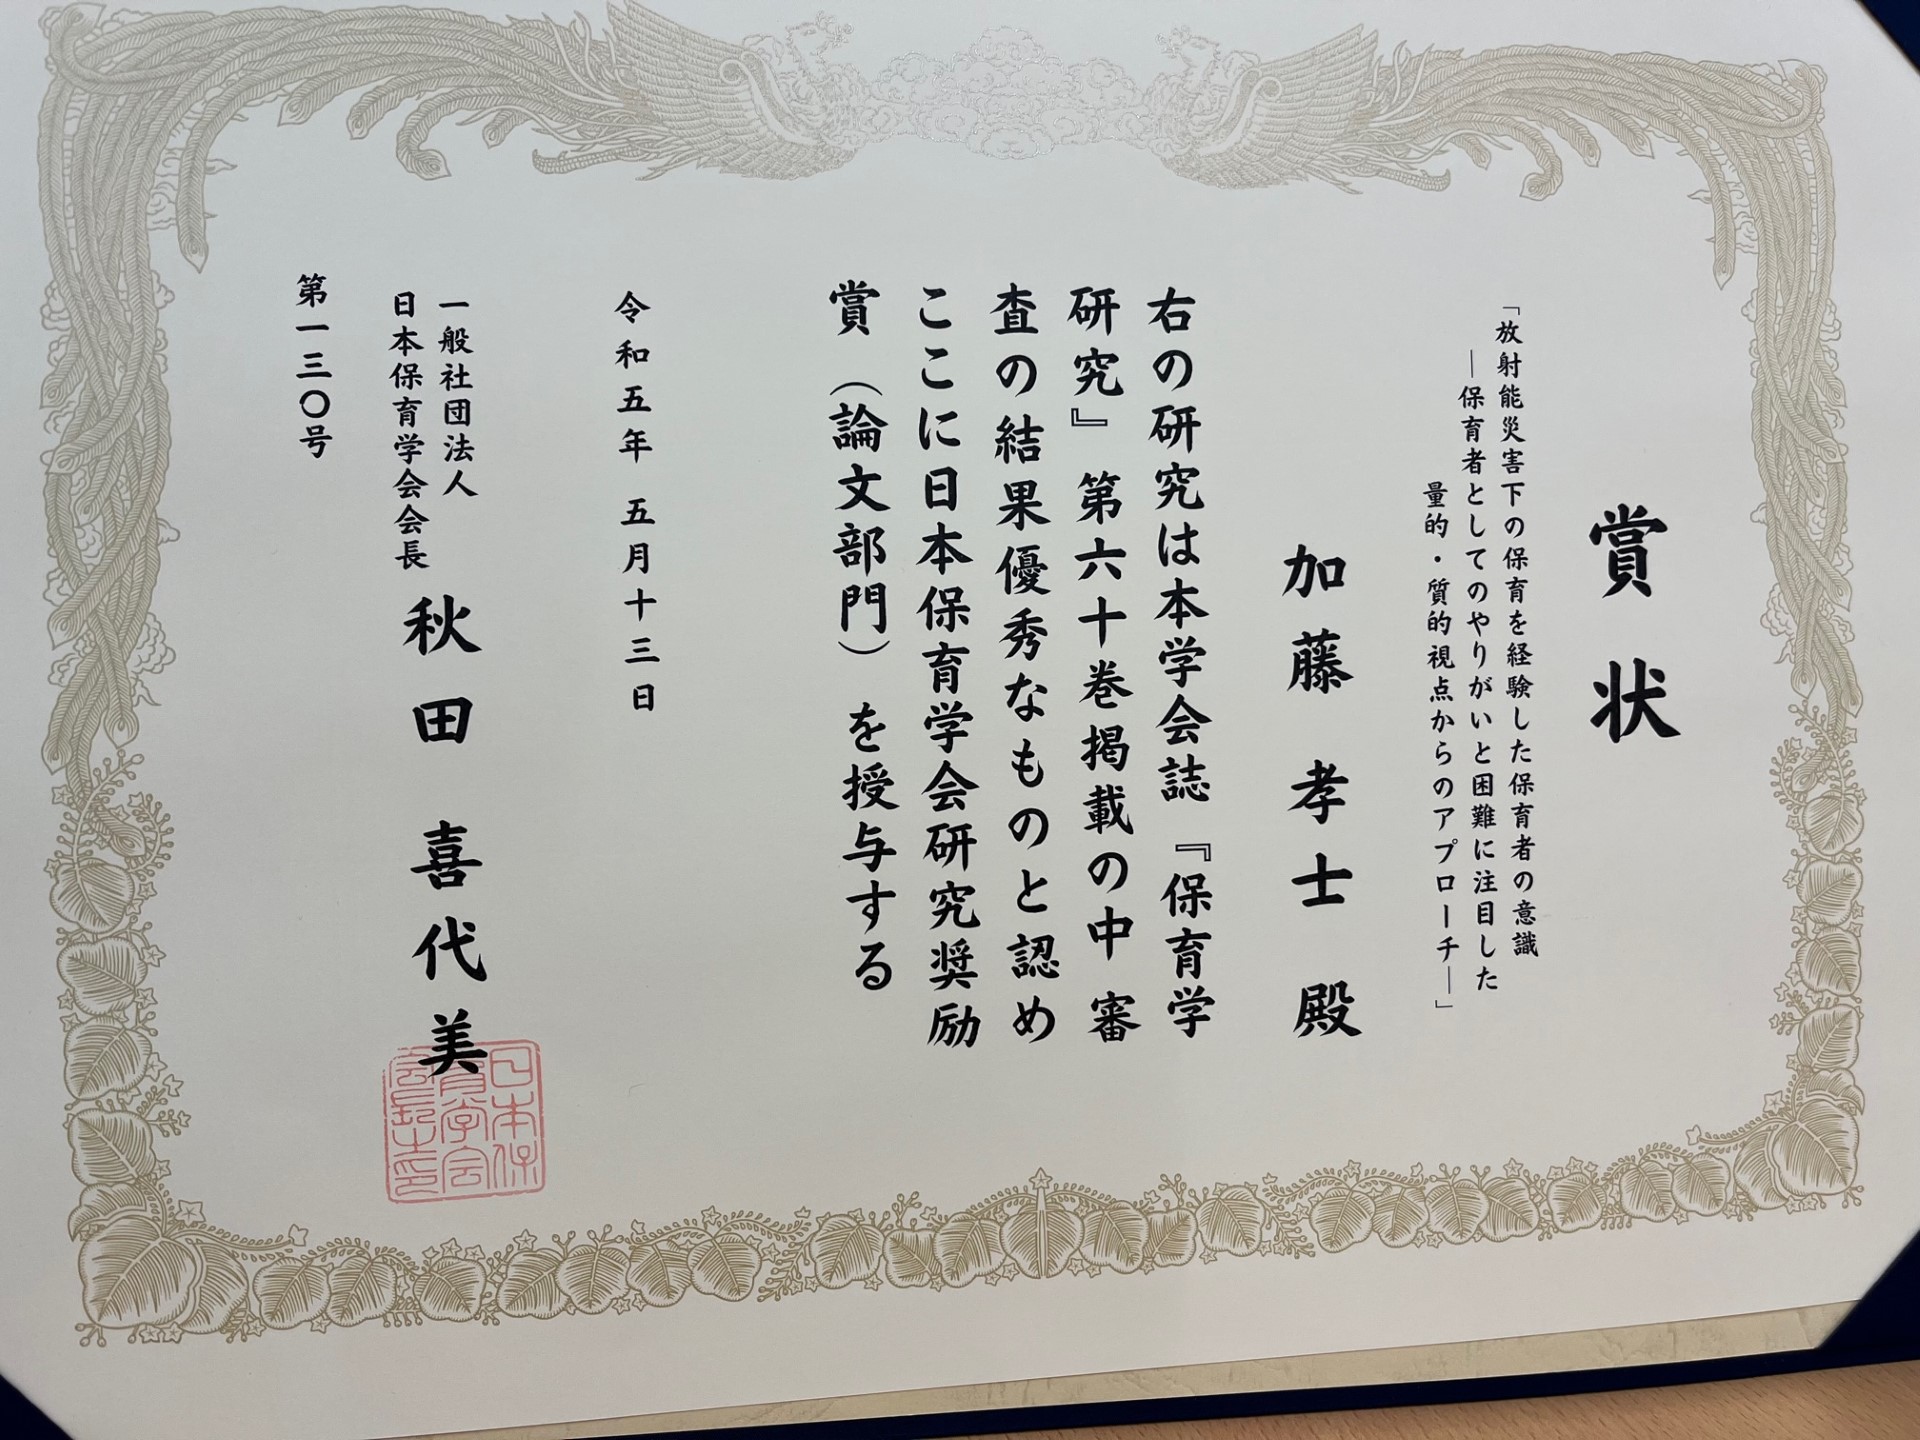 賞状
「放射能災害下の保育を経験した保育者の意識
―保育者としてのやりがいと困難に注目した
量的・質的視点からのアプローチ―」
加藤孝士殿
右の研究は本学会誌『保育学
研究』第六十巻掲載の中審
査の結果優秀なものと認め
ここに日本保育学会研究奨励
賞（論文部門）を授与する
令和五年 五月十三日
一般社団法人
日本保育学会会長 秋田喜代美
第一三〇号
日本保
育学会
会長之印